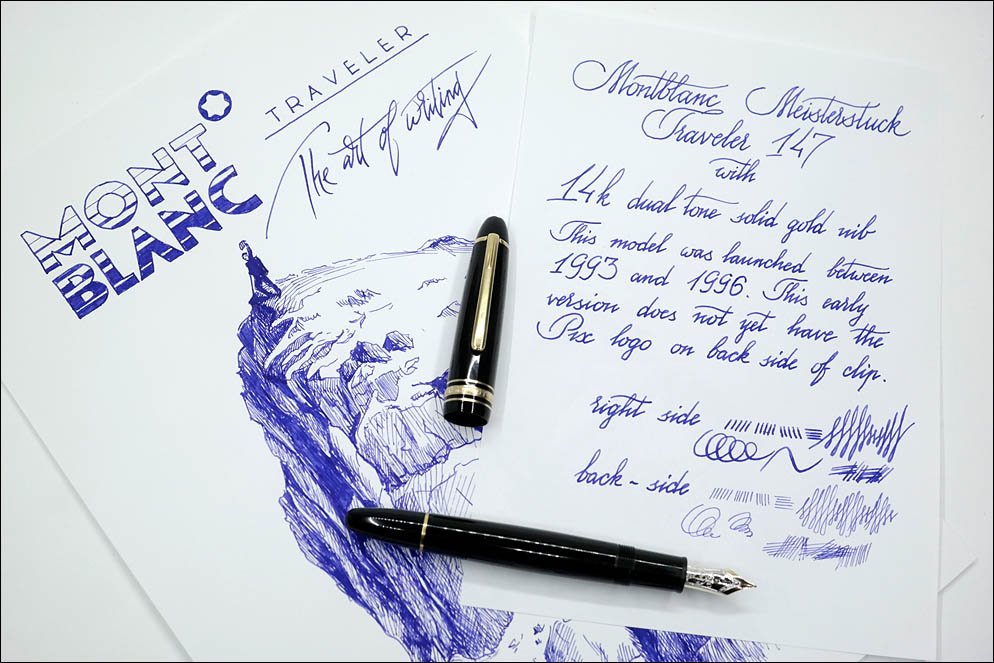 MONT
BLANC
TRAVELER
The art of writing
Montblanc Meisterstuck
Traveler 147
with
14k dual tone solid gold nib
This model was launched between
1993 and 1996. This early
version does not yet have the
Pix logo on back side of clip.
right side
back - side